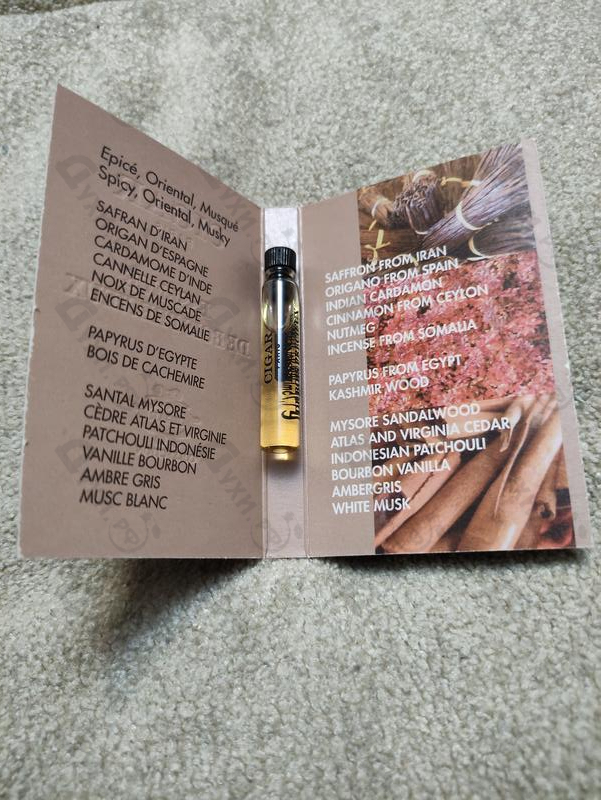 Epicé, Oriental, Musqué
Spicy, Oriental, Musky
SAFRAN D'IRAN
ORIGAN D'ESPAGNE
CARDAMOME D'INDE
CANNELLE CEYLAN
NOIX DE MUSCADE
ENCENS DE SOMALIE
PAPYRUS D'EGYPTE
BOIS DE CACHEMIRE
SANTAL MYSORE
CÈDRE ATLAS ET VIRGINIE
PATCHOULI INDONÉSIE
VANILLE BOURBON
AMBRE GRIS
MUSC BLANC
CIGAR
SAFFRON FROM IRAN
ORIGANO FROM SPAIN
INDIAN CARDAMON
CINNAMON FROM CEYLON
NUTMEG
INCENSE FROM SOMALIA
PAPYRUS FROM EGYPT
KASHMIR WOOD
MYSORE SANDALWOOD
ATLAS AND VIRGINIA CEDAR
INDONESIAN PATCHOULI
BOURBON VANILLA
AMBERGRIS
WHITE MUSK